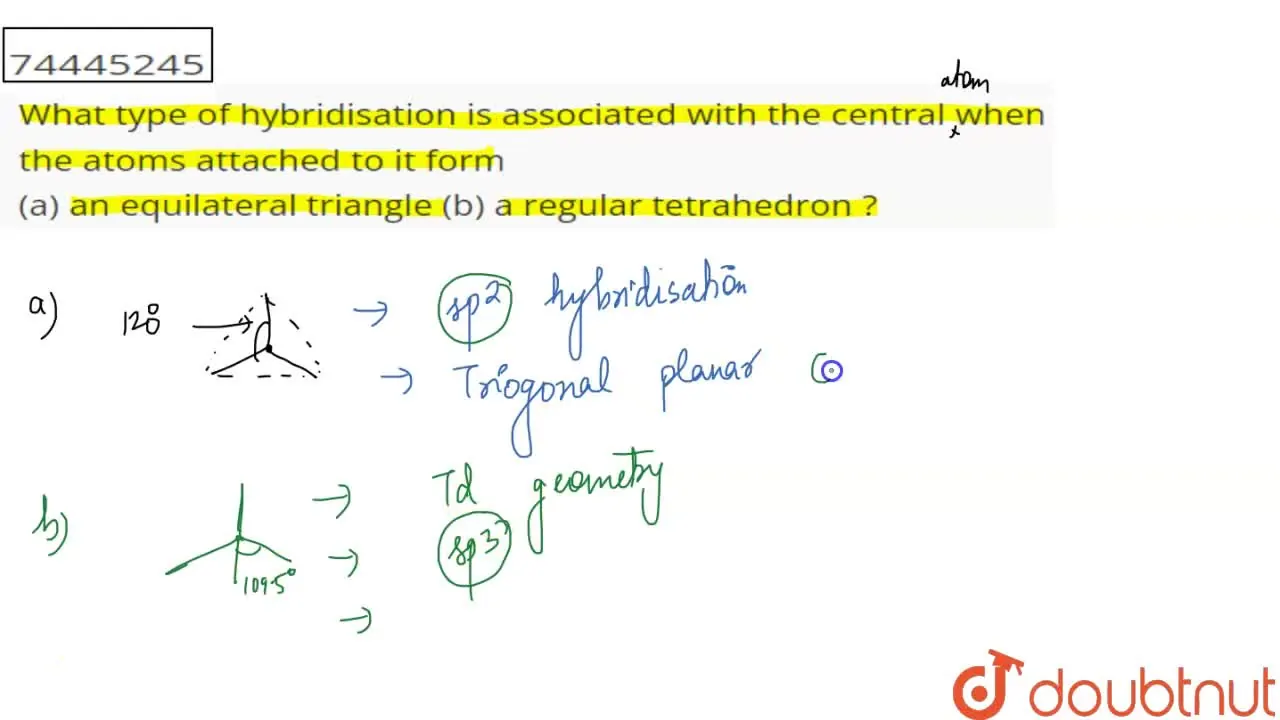 74445245
atom
What type of hybridisation is associated with the central when
x
the atoms attached to it form
(a) an equilateral triangle (b) a regular tetrahedron ?
a) 120° → sp2 hybridisation
→ Triogonal planar (
b) → Td geometry
→ sp3
109.5°
→
doubtnut